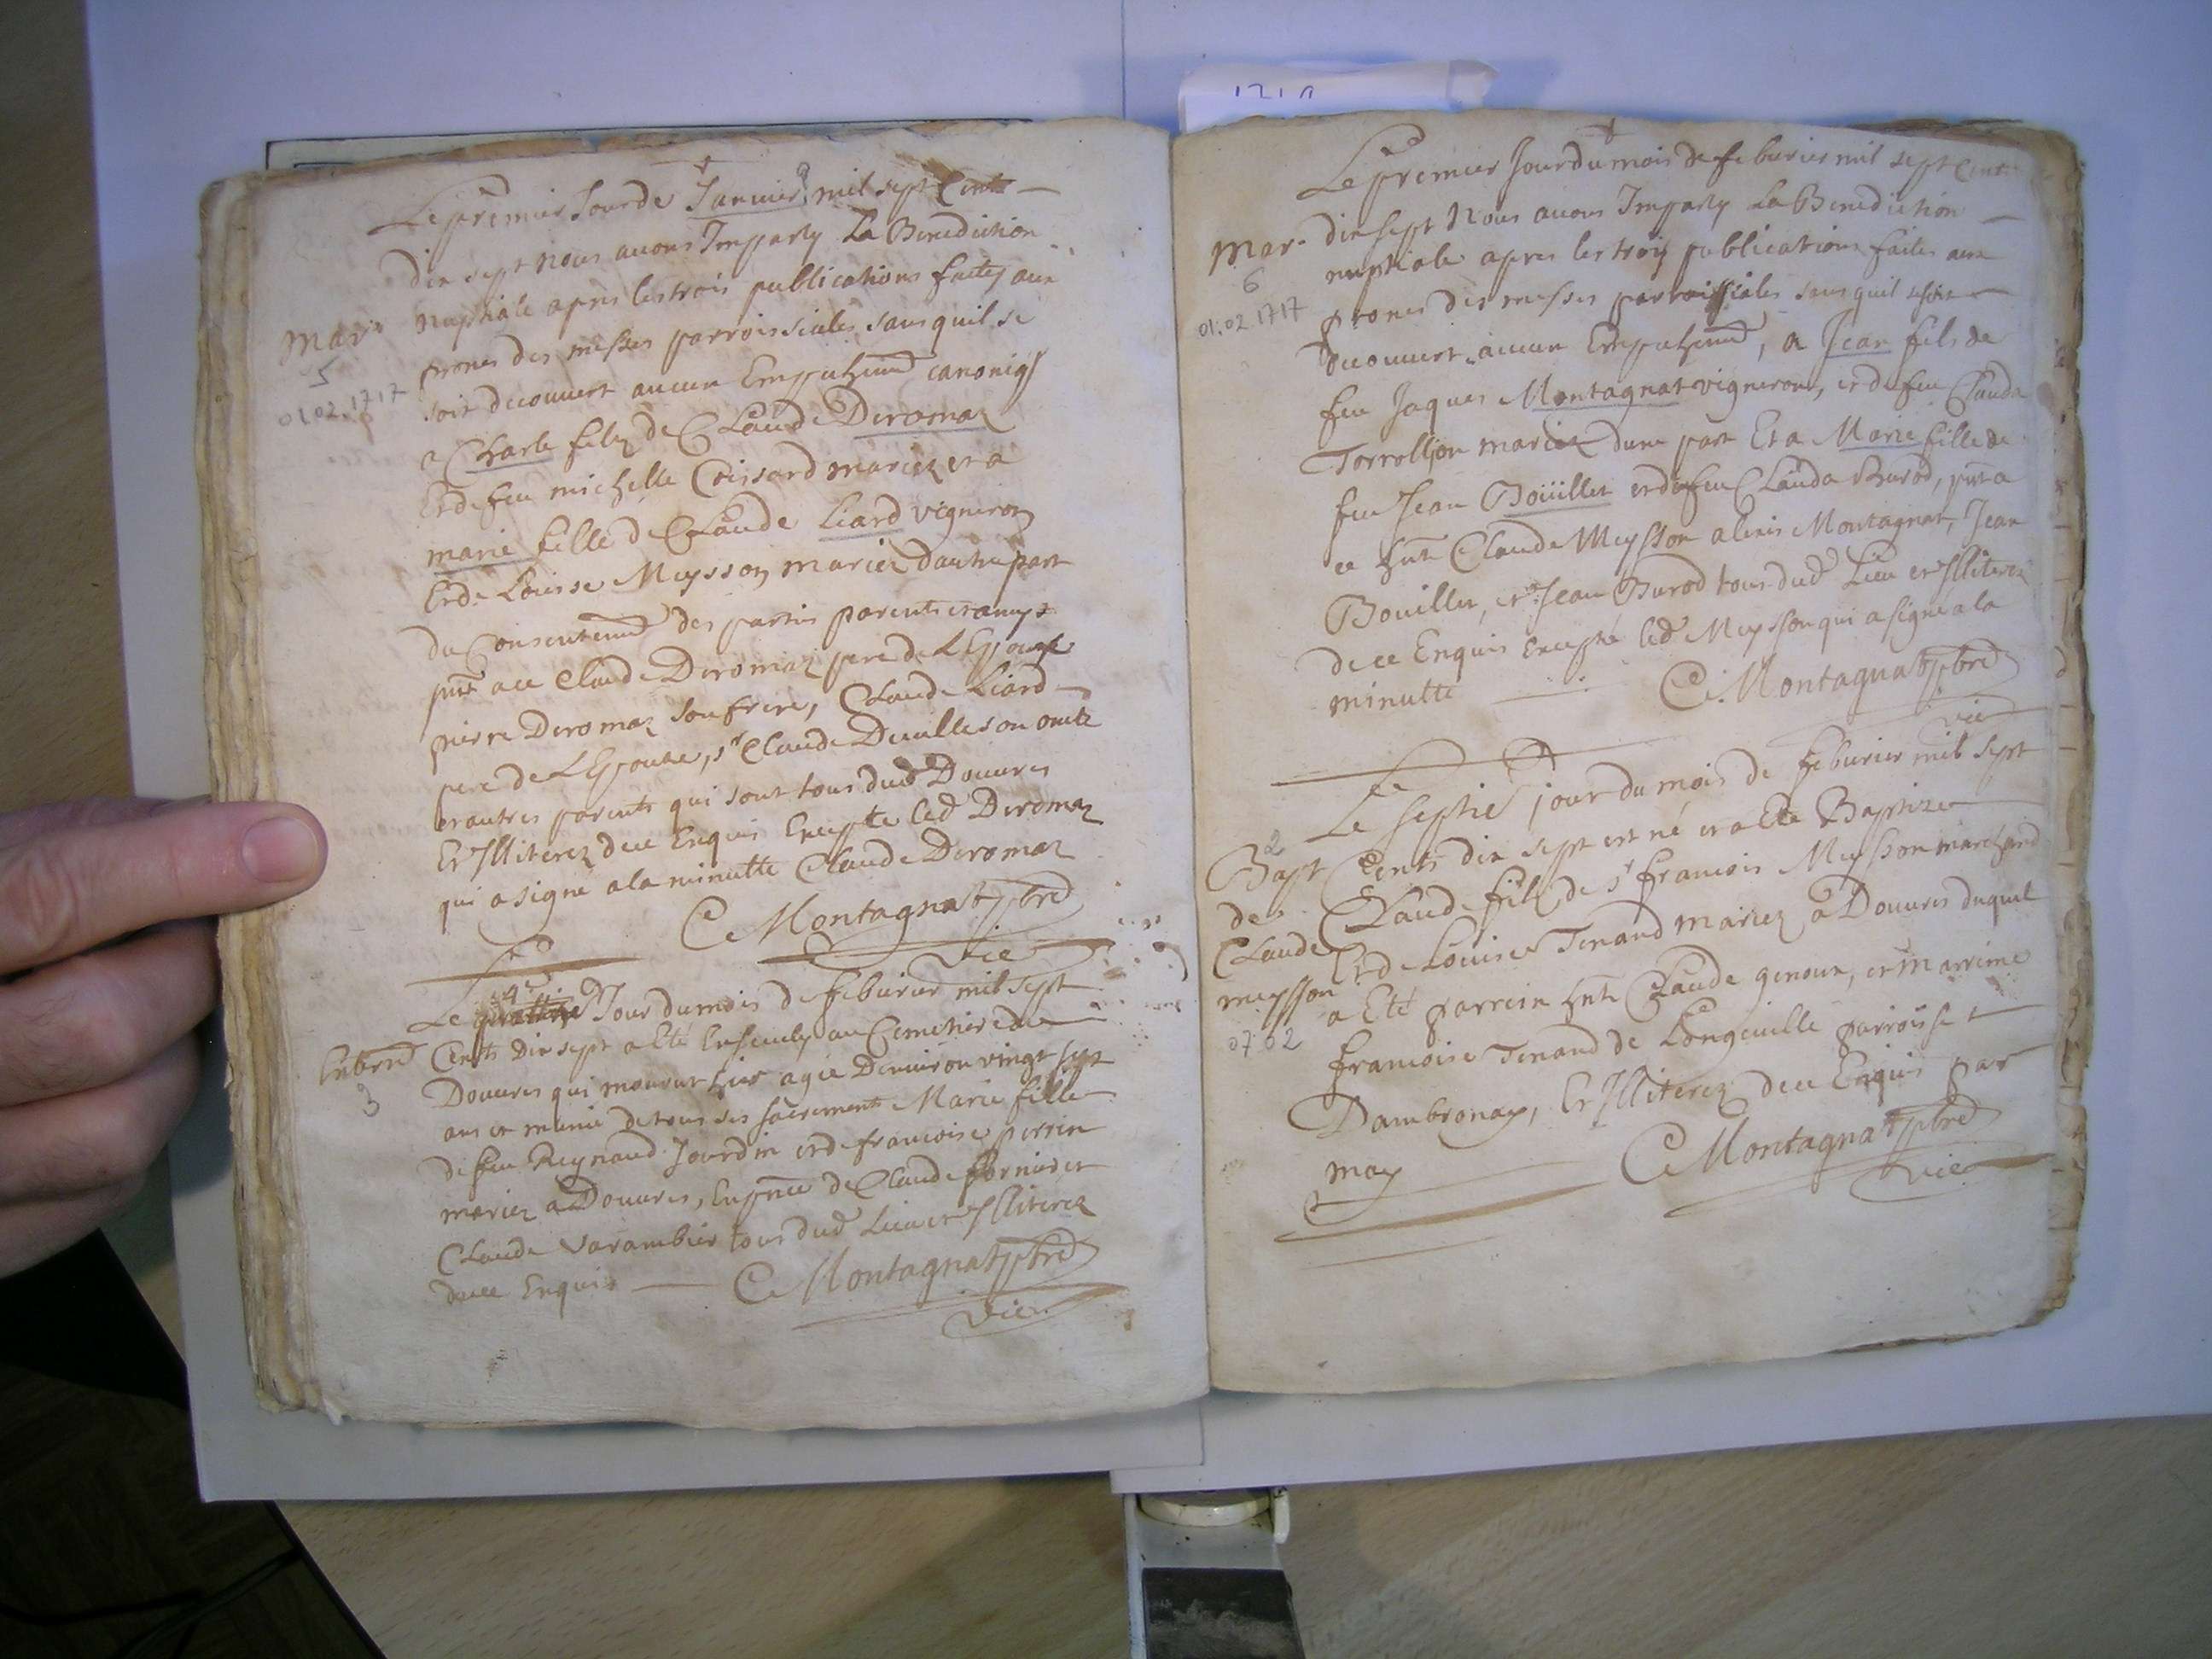 Le premier Jour de Januier mil sept Cents
dix sept nous auons Imparty La Benediction
Mar.
nuptiale apres les trois publications faites aux
5
prones des messes parroissiales sans quil se
01.02.1717
soit decouuert aucun Empechemt canoniq
a Charle filz de Claude Deromaz
Et de feu michelle Coissard mariez et a
marie fille de Claude Liard vigneron
Et de Louise Meysson mariez dautre part
du Consentemt des partis parents et amys
pnt a ce Claude Deromaz pere de LEpoux
pierre Deromaz son frere, Claude Liard
pere de LEpouse, sr Claude Deuille son oncle
et autres parents qui sont tous dud Douures
Et Jlliterez de ce Enquis Excepte led Deromaz
qui a signé a la minutte Claude Deromaz
C Montagnat pbre
vic
4e
Le Jour du mois de feburier mil sept
Enterrt
Cents Dix sept a Eté Enseuely au Cemetiere de
3
Douures qui mourut hier agée Denuiron vingt sept
ans et munie de tous ses sacrements Marie fille
de feu Reynaud Jourdin et de francoise perrin
mariez a Douures, En pnce de Claude fornier et
Claude Varambier tous dud Lieu et Jlliterez
de ce Enquis C Montagnat pbre
vic
1710
Le premier Jour du mois de feburier mil sept Cents
Mar. dix sept Nous auons Imparty La Benediction
6
nuptiale apres les trois publications faites aux
01.02.1717
prones des messes parroissiales sans quil se soit
decouuert aucun Empechemt, a Jean fils de
feu Jaques Montagnat vigneron, et de feu Clauda
Torrollion mariez dune part Et a Marie fille de
feu Jean Boüillet et de feu Clauda Burod, pnt a
ce hnte Claude Meysson alexis Montagnat, Jean
Bouillet, et Jean Burod tous dud Lieu et Jlliterez
de ce Enquis Excepté led Meysson qui a signé a la
minutte C. Montagnat pbre
vic
Le septie jour du mois de feburier mil sept
2
Bapt Cents dix sept est né et a Eté Baptizé
de Claude filz de sr francois Meysson marchand
Claude Et de Louise Tenand mariez a Douures duquel
meysson a Eté parrein hnte Claude genoux, et marrine
07.02
francoise Tenand de Longeuille parroisse
Dambronay, Et Jlliterez de ce Enquis par
moy C Montagnat pbre
vic